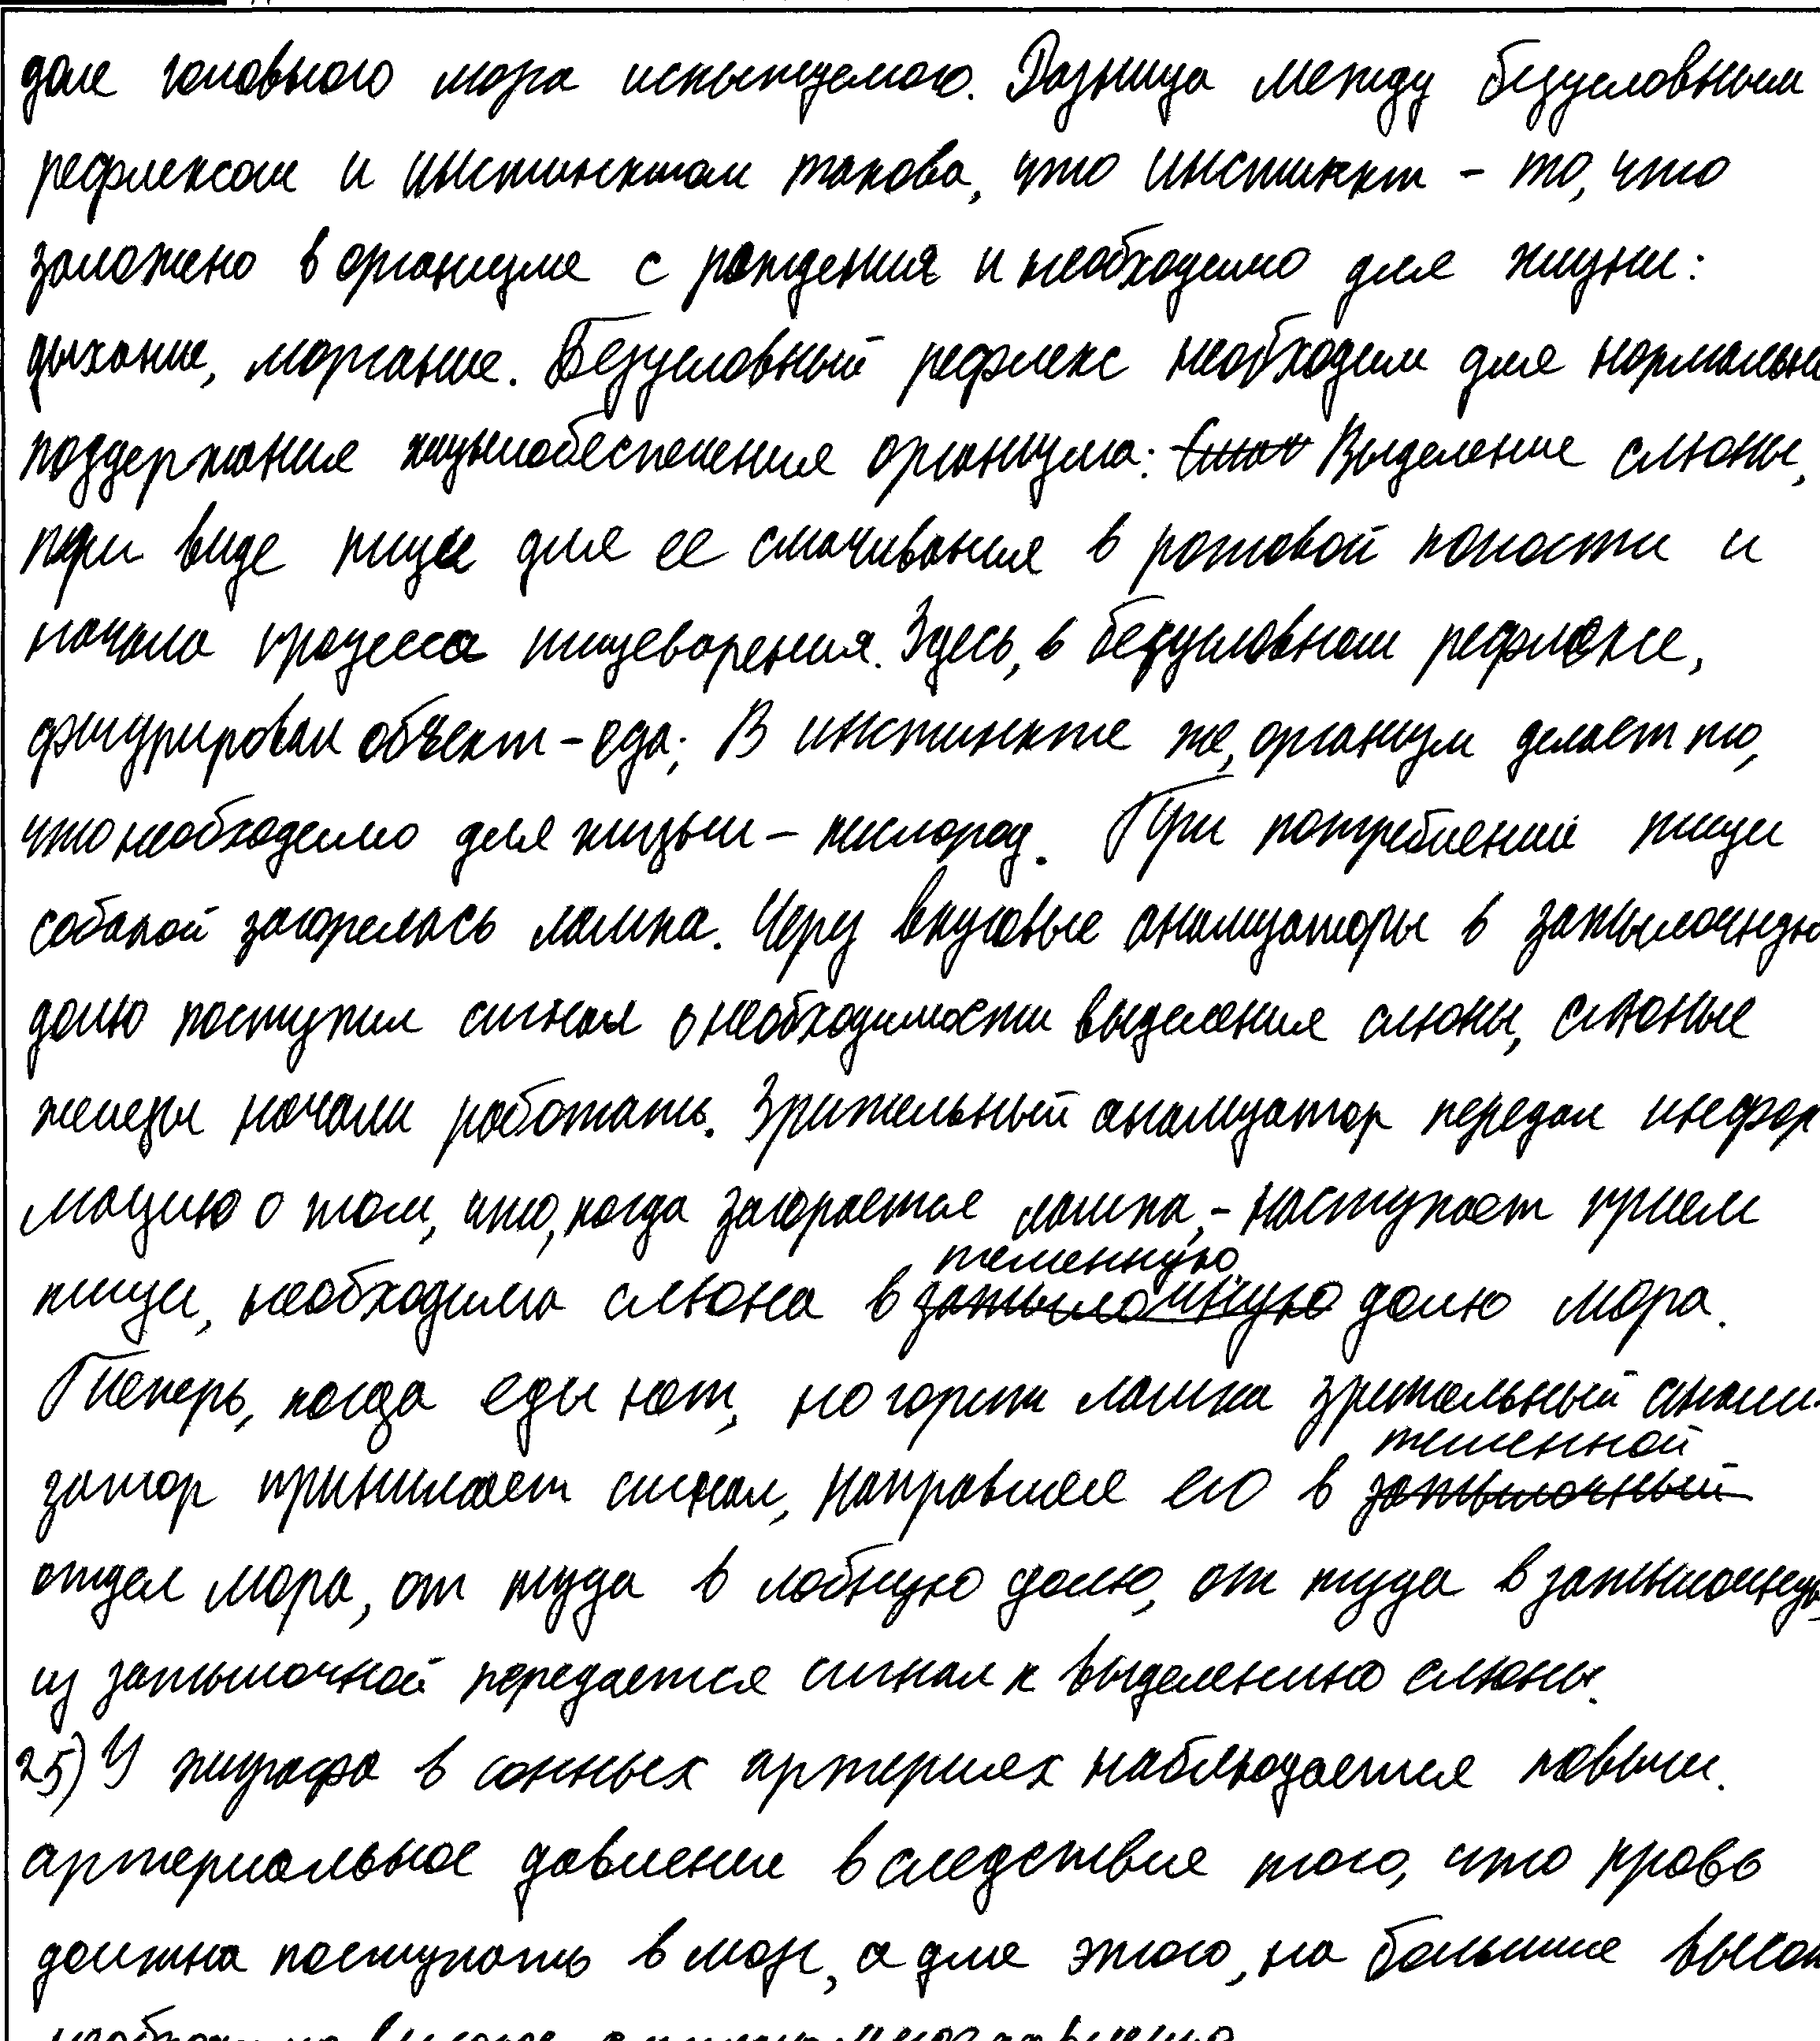 доле головного мозга испытуемого. Разница между безусловным
рефлексом и инстинктом такова, что инстинкт - то, что
заложено в организме с рождения и необходимо для жизни:
дыхание, моргание. Безусловный рефлекс необходим для нормально
поддержания жизнеобеспечения организма: Выделение слюны,
при виде пищи для ее смачивания в ротовой полости и
начала процесса пищеварения. Здесь, в безусловном рефлексе,
фигурировал объект - еда; В инстинкте же, организм делает то,
что необходимо для жизни - кислород. При потреблении пищи
собакой загорелась лампа. Через вкусовые анализаторы в затылочную
долю поступил сигнал о необходимости выделения слюны, слюные
железы начали работать. Зрительный анализатор передал инфор
мацию о том, что, когда загорается лампа, - наступает прием
пищи, необходима слюна в теменную затылочную долю мозга.
Теперь, когда еды нет, но горит лампа зрительный анали-
затор принимает сигнал, направляя его в теменной затылочный
отдел мозга, от туда в лобную долю, от туда в затылочную,
из затылочной передается сигнал к выделению слюны.
25) У жирафа в сонных артериях наблюдается повыш.
артериальное давление вследствие того, что кровь
должна поступать в мозг, а для этого, на большие высот